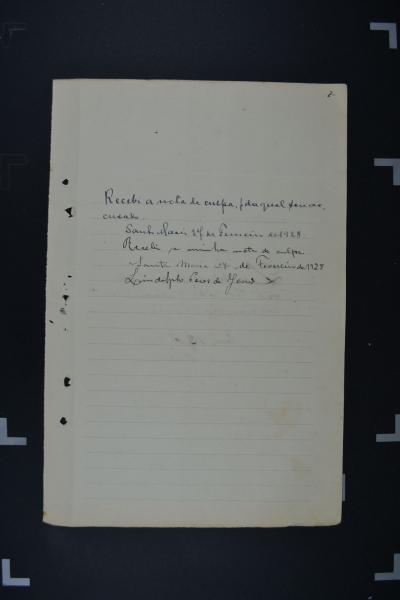 2
Recebi a nota de culpa, pela qual sou ac
cusado.
Santa Maria 27 de Fevereiro de 1928.
Recebi a minha nota de culpa
Santa Maria 27 de Fevereiro de 1928
Lindolpho